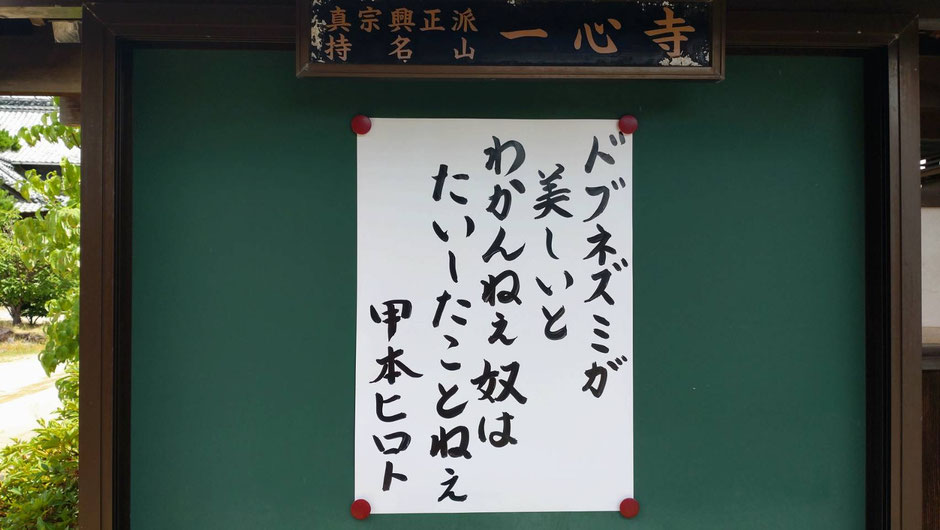 真宗興正派
持名山
一心寺
ドブネズミが
美しいと
わかんねぇ奴は
たいしたことねぇ
甲本ヒロト